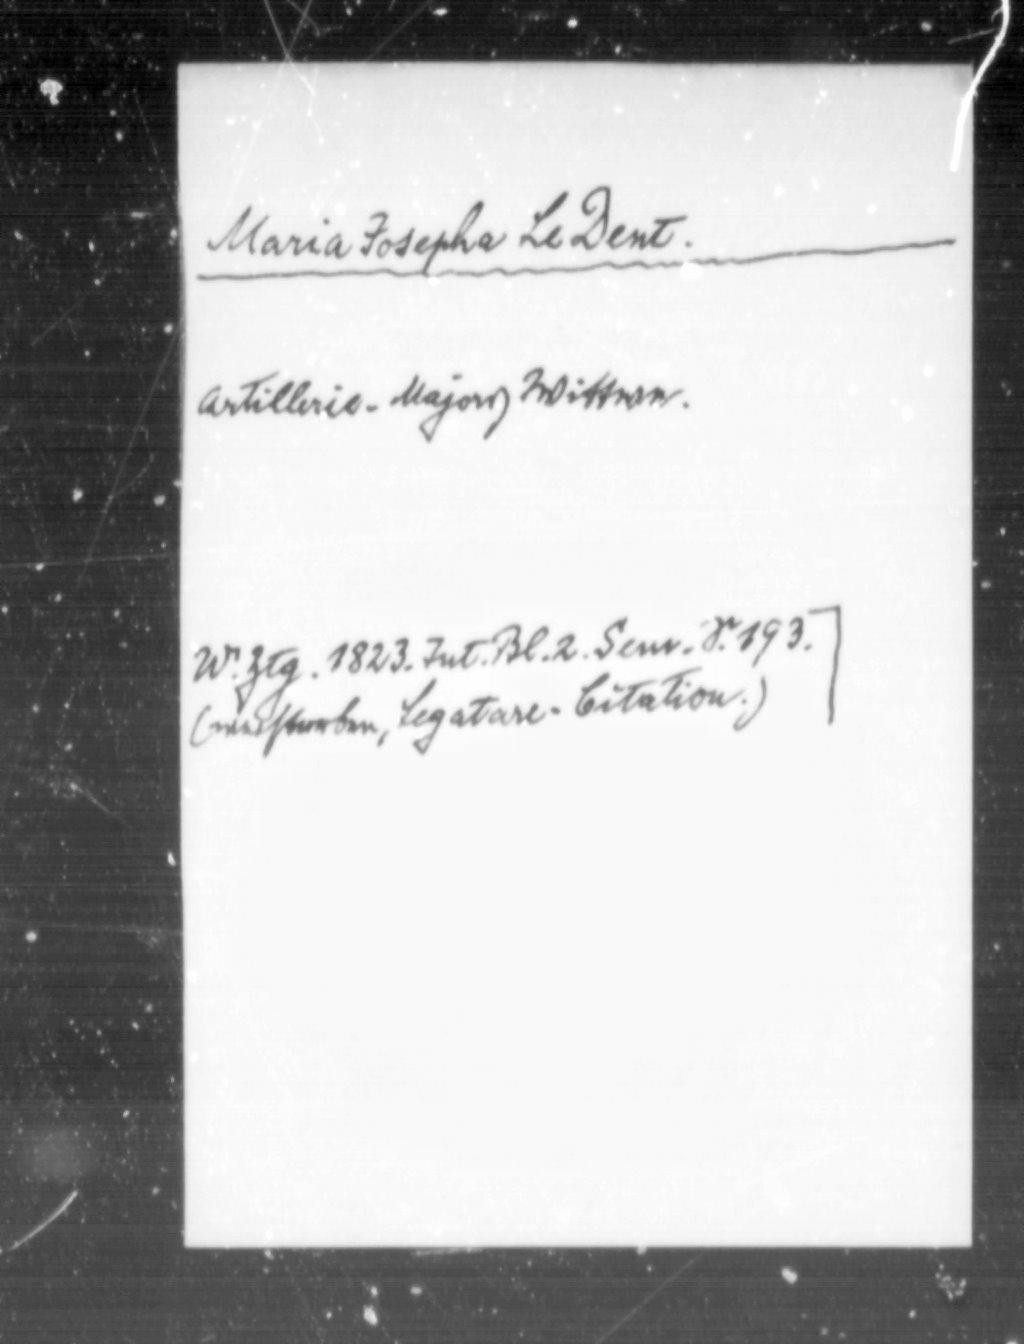 Maria Josepha Le Dent.
Artillerie-Majors Wittwe.
Wr. Ztg. 1823. Int. Bl. 2. Sem. S. 193.
(verstorben, Legatare-Citation.)